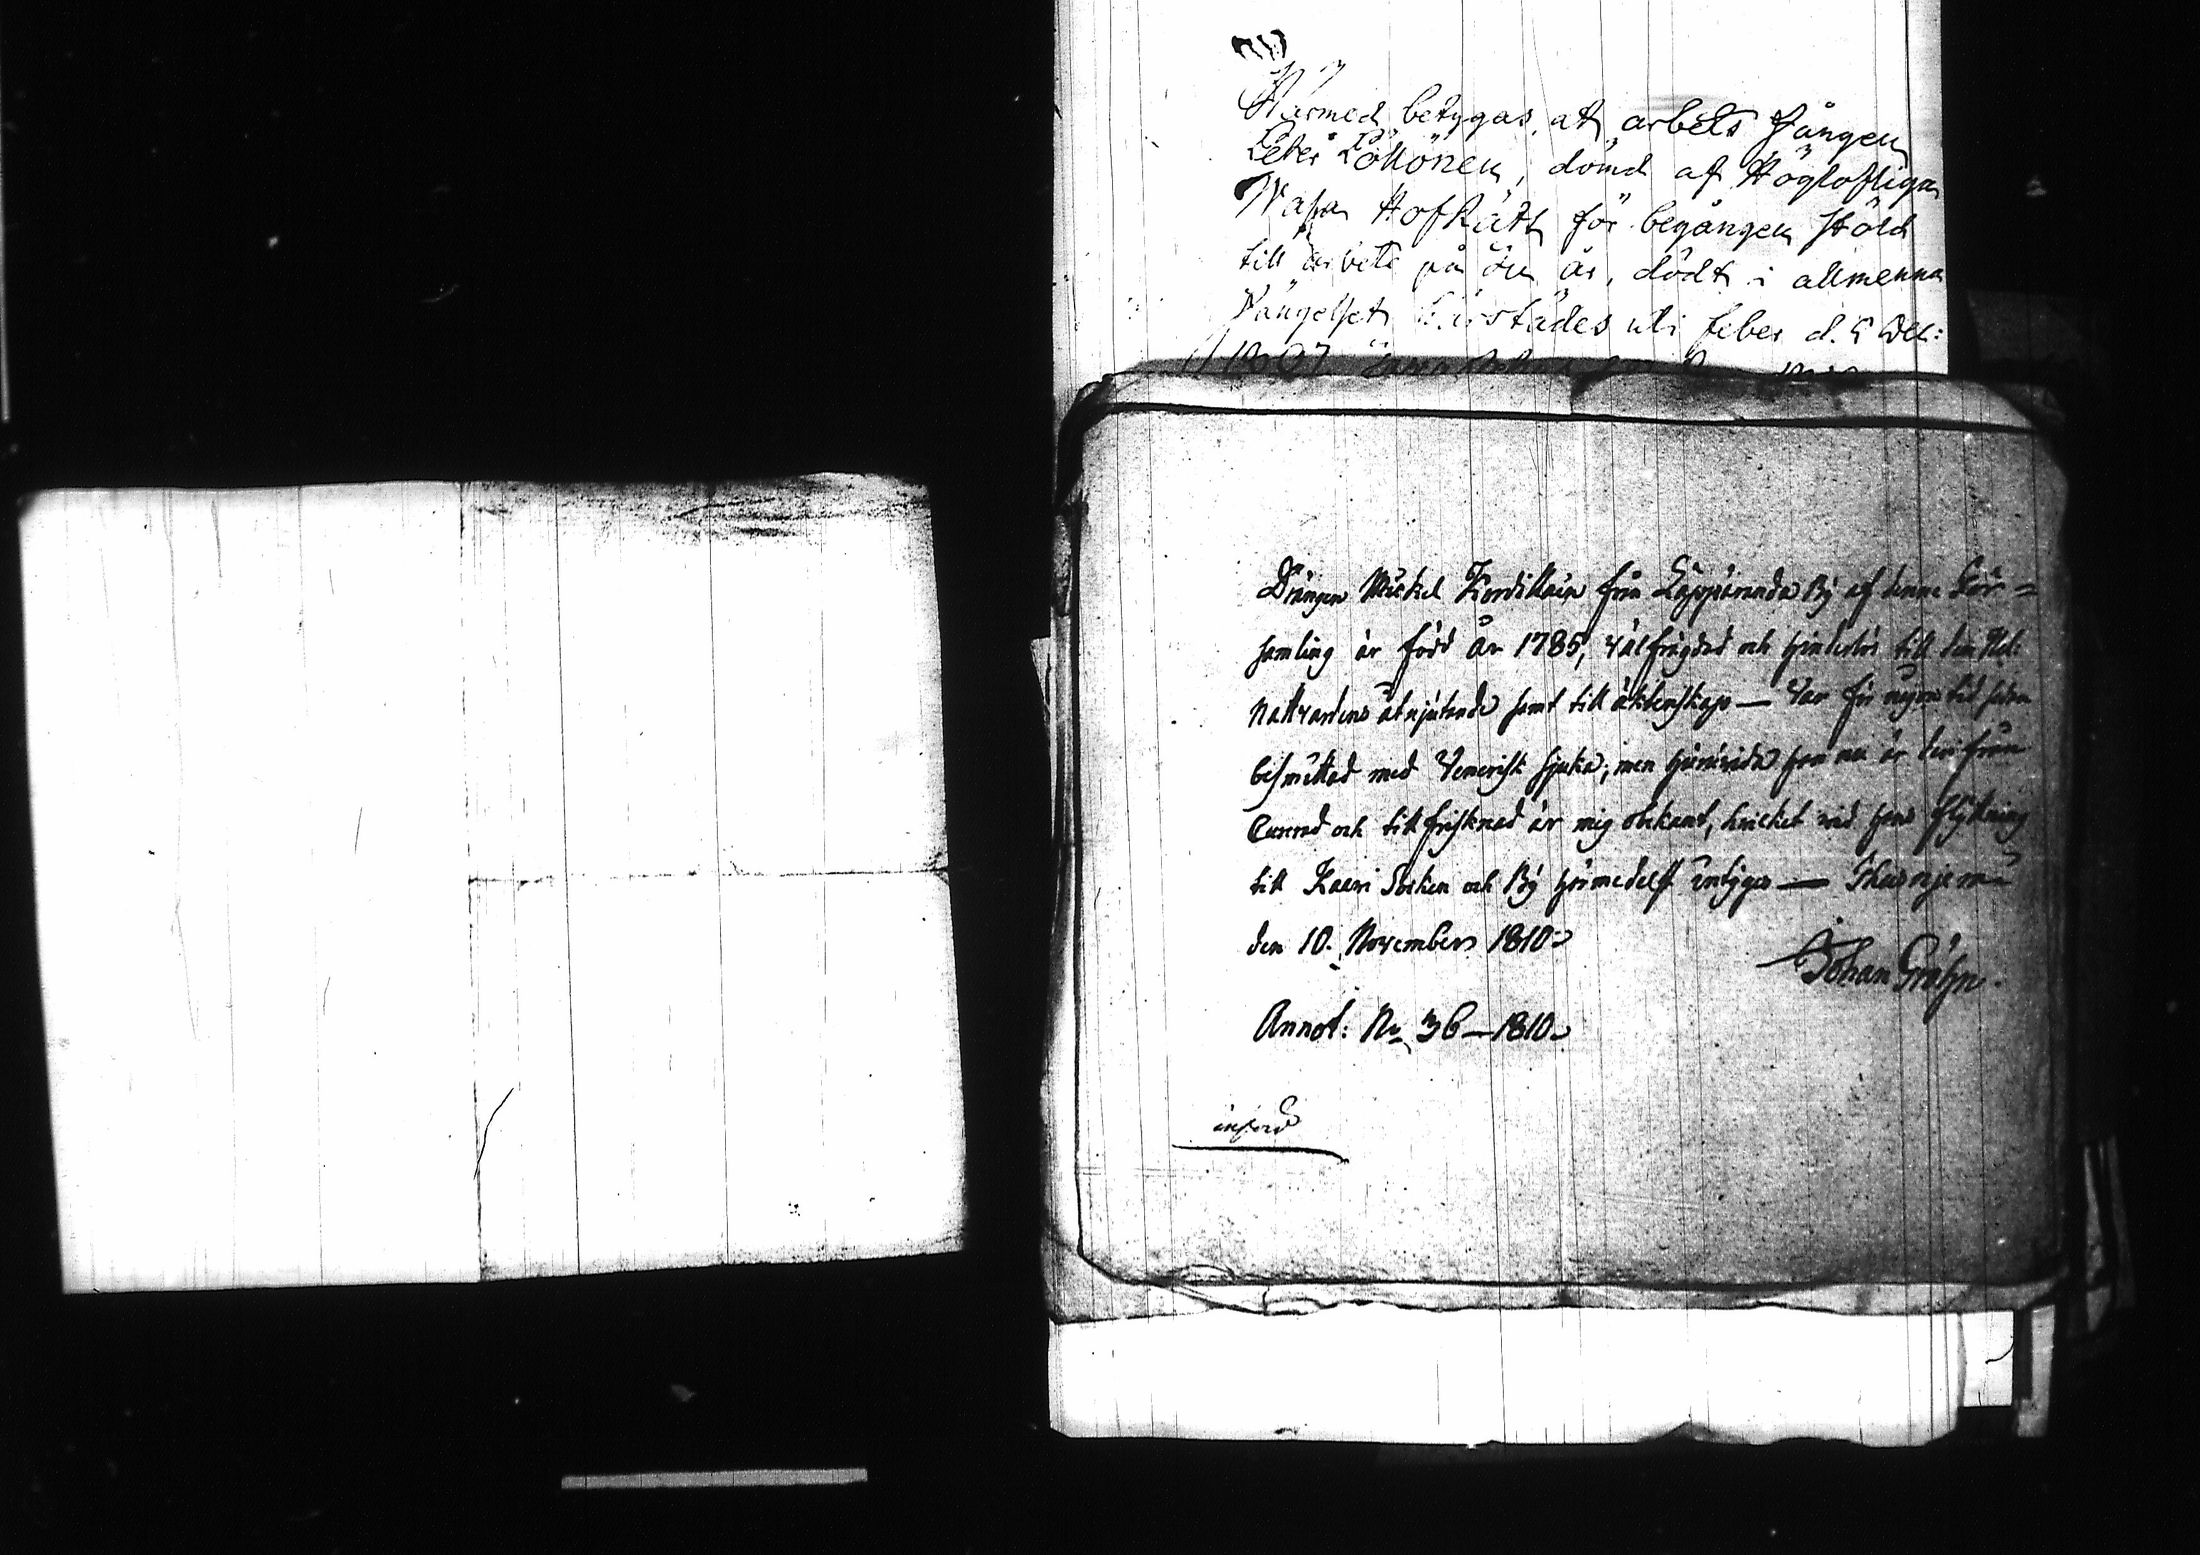 Härmed betygas, att arbets fången
Peter Pöllönen, dömd af Höglofliga
Wasa HofRätt för begången stöld
till arbete på ön år, dödt i allmenna
Fängelset härstädes uti feber d. 5 Dec:
1807
Drängen Mickel från By af denne För=
samling är född år 1785, välfrägdad och hinderlös till den Hel:
Nattvardens åtnjutande samt till äktenskap — Var för någon tid sedan
besmittad med Venerisk sjuka; men huruvida han nu är derifrån
Curerad och tillfrisknad är mig obekant, hvilket vid hans flyttning
till Kaavi Socken och By härmedelst intygas —
den 10. November 1810.
Johan Grahn.
Annot: No 36 — 1810.
införd